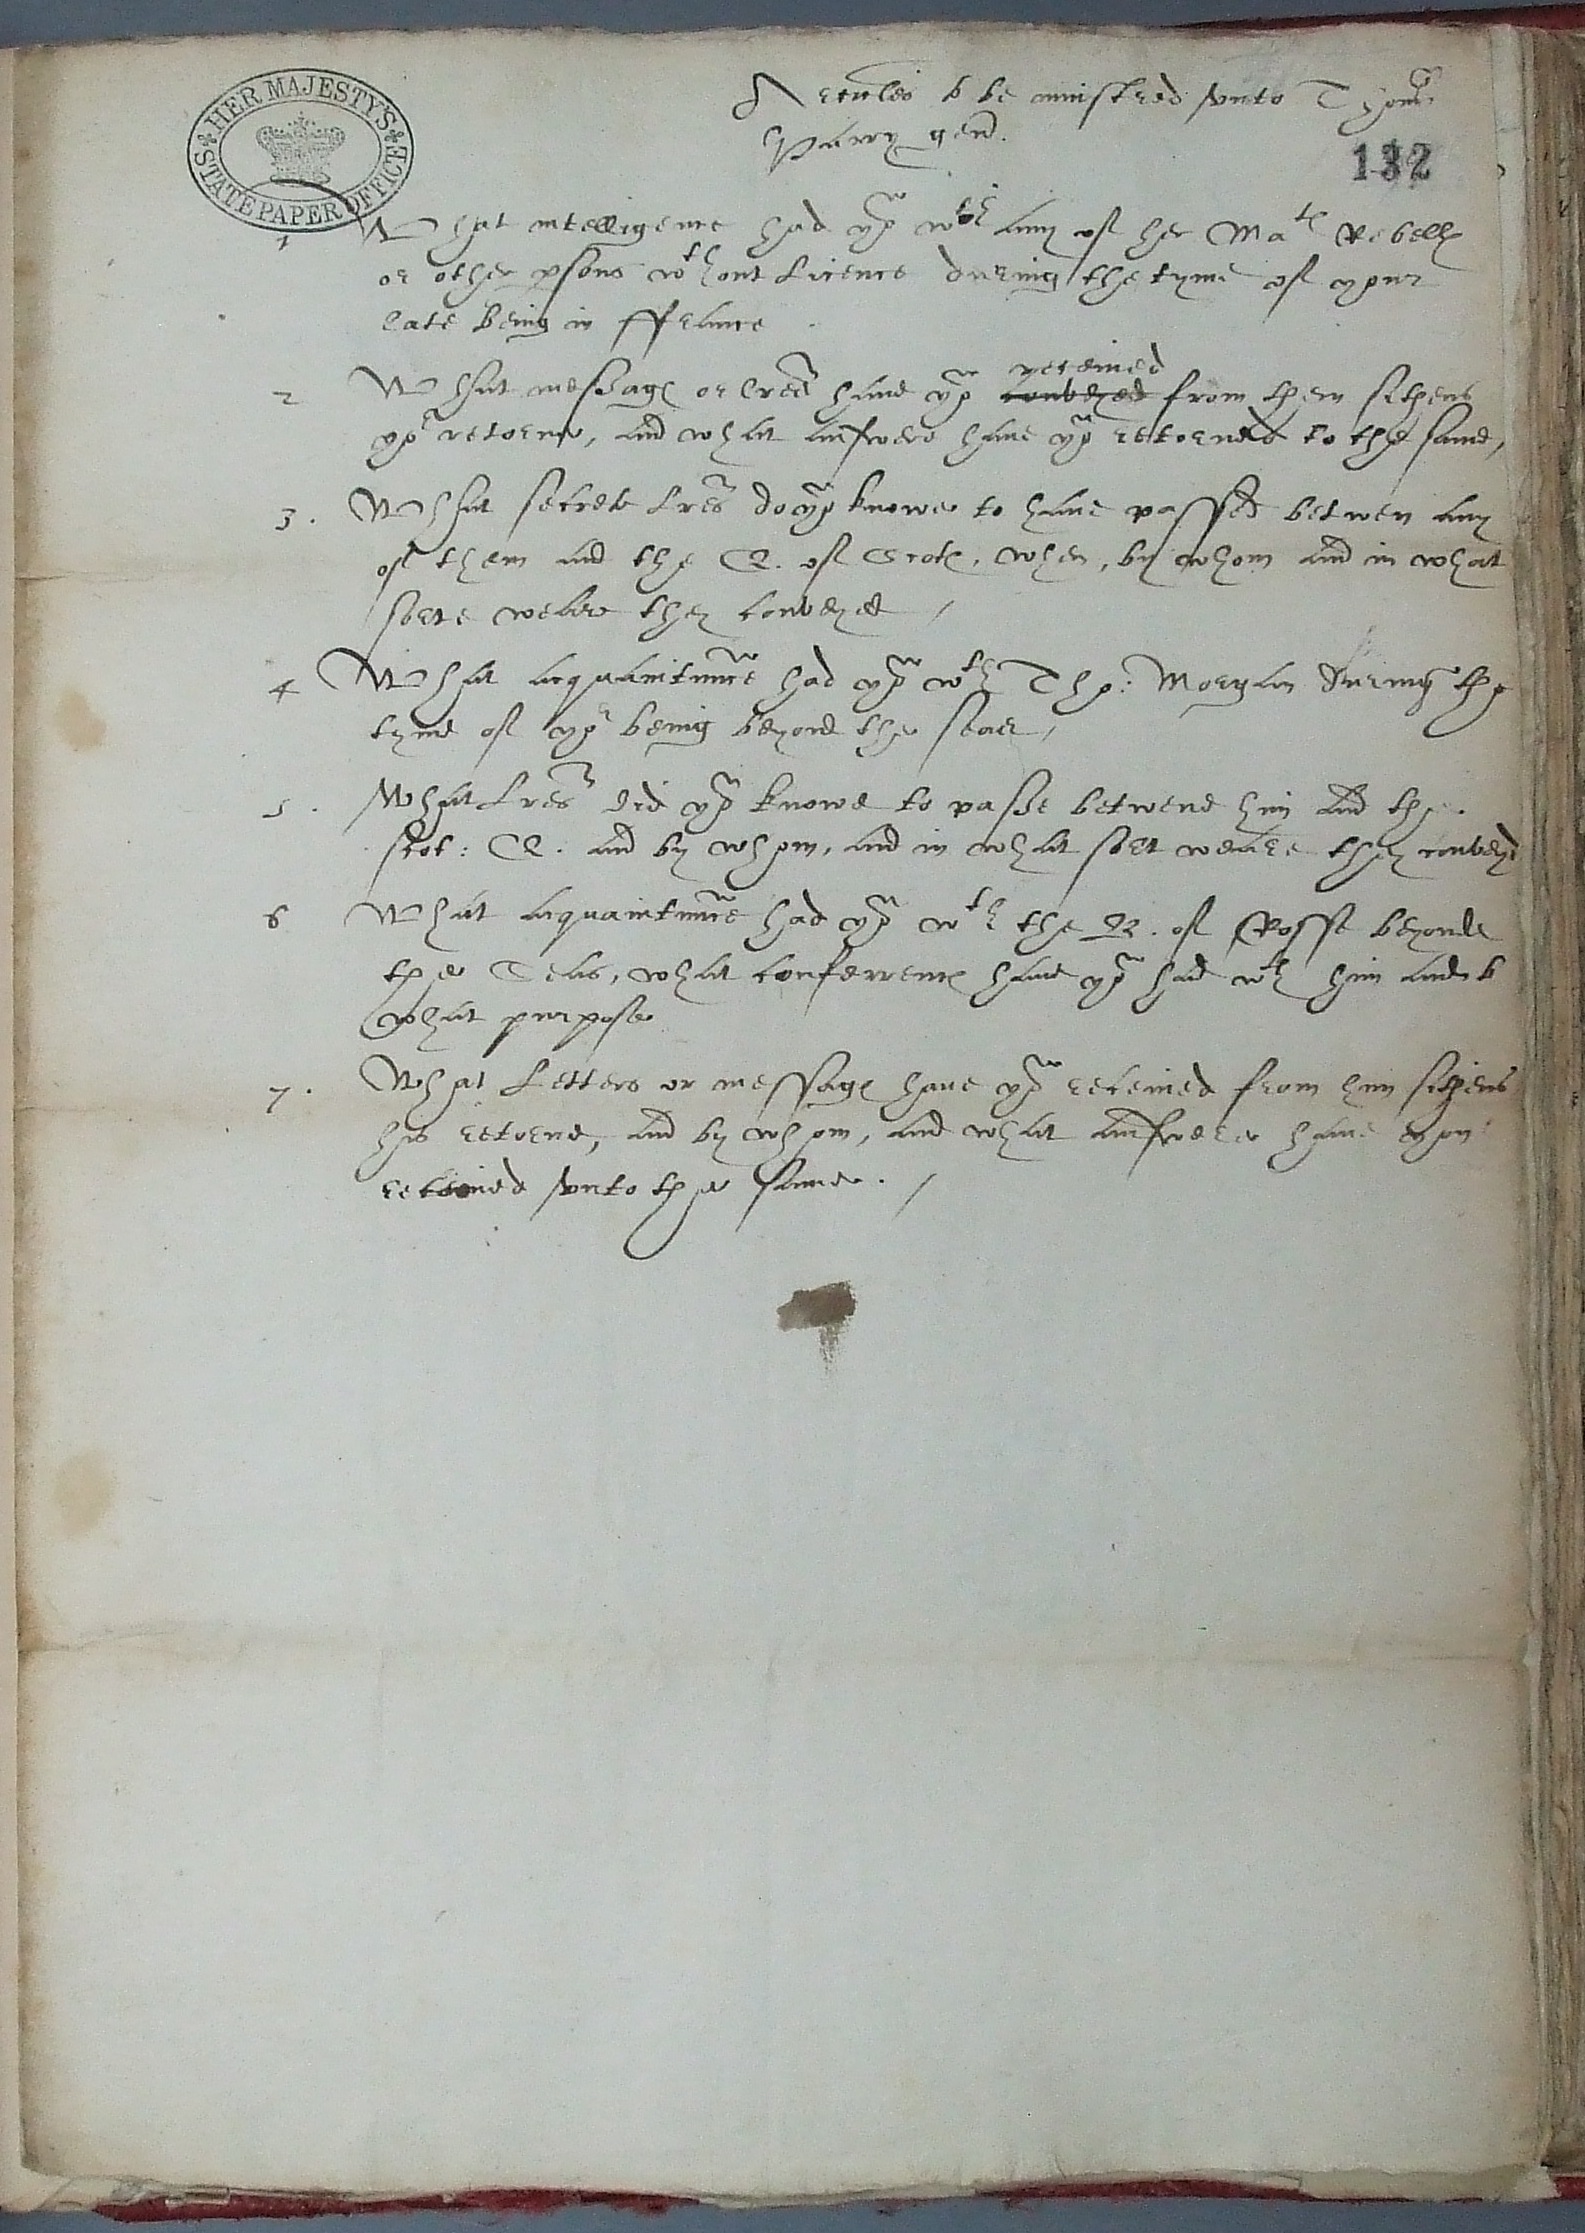 HER MAJESTY'S STATE PAPER OFFICE
Articles to be ministred vnto Thom:
Parry gent.
132
1 What intelligence had yow wth any of her Mats Rebells
or other psons wthout Licence during the tyme of your
late being in ffraunce
receiued
2 What messages or lres haue yow conveyed from them sithens
yor retorne, and what answere haue yow retorned to the same,
3. What secrete Lres do yow knowe to haue passed betwen any
of them and the Q. of Scots, when, by whom and in what
sorte weare they conveyed /
4 What acquaintance had yow wth Tho: Morgan during the
tyme of yor being beyond the seas,
5. What Lres did yow knowe to passe betwene him and the
Scot: Q. and by whom, and in what sort weare they conveyd
6 What acquaintance had yow wth the B. of Rosse beyonde
the Seas, what conferrences haue yow had wth him and to
what purpose
7. What Letters or messages haue yow receiued from him sithens
his retorne, and by whom, and what answere haue yow
retorned vnto the same. /